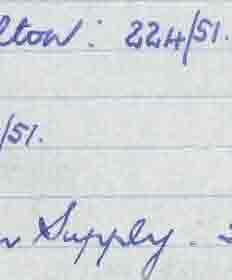 lton: 224/51.
/51.
Supply.